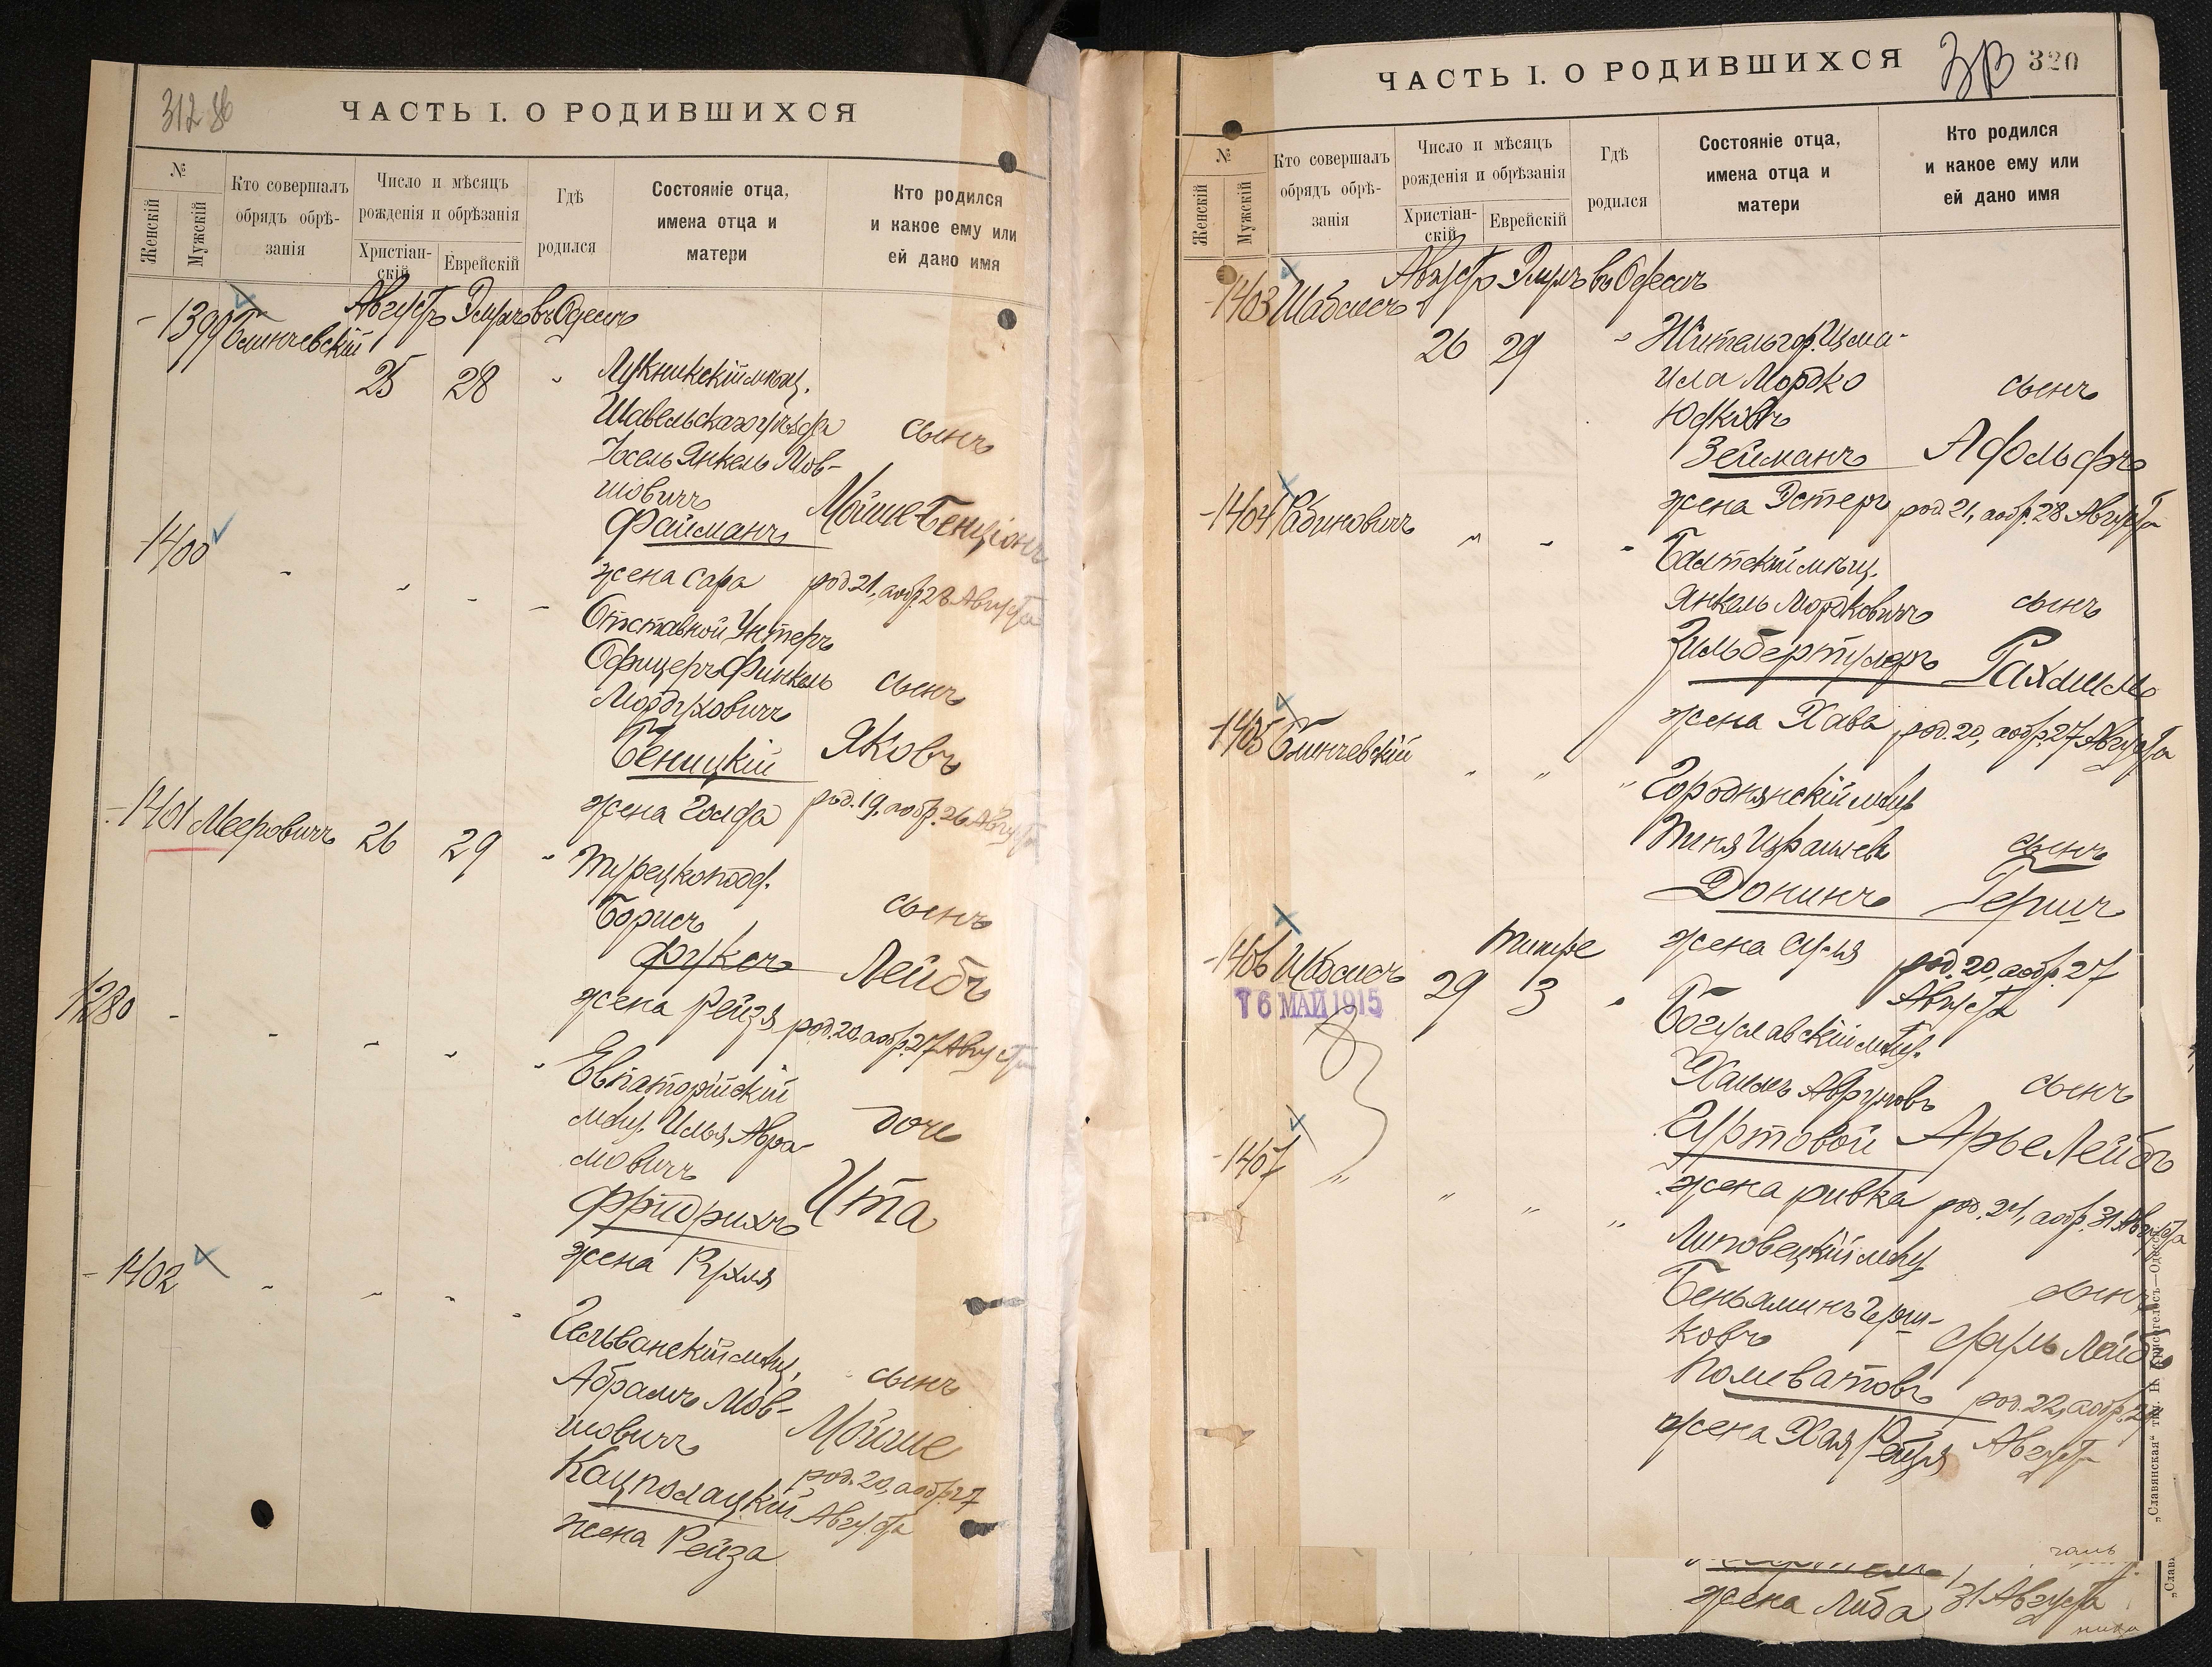 312 об
ЧАСТЬ I. О РОДИВШИХСЯ
№
Женскій
Мужскій
Кто совершалъ
обрядъ обрѣ-
занія
Число и мѣсяцъ
рожденія и обрѣзанія
Христіан-
скій
Еврейскій
Гдѣ
родился
Состояніе отца,
имена отца и
матери
Кто родился
и какое ему или
ей дано имя
Августъ Элулъ въ Одессѣ
1399 Блинчевскій
25 28 Лукникскій мѣщ.
Шавельскаго уѣзда сынъ
Іосель Янкель Мов-
шовичъ Мойше-Бенціонъ
Файманъ
жена Сара род. 21, а обр. 28 Августа
1400
Отставной Унтеръ
Офицеръ Финкель сынъ
Мордуховичъ
Беницкій Яковъ
жена Голда род. 19, а обр. 26 Августа
1401 Мееровичъ 26 29 Турецкопод.
Борисъ сынъ
Фуксъ Лейбъ
жена Рейзя род. 20, а обр. 27 Августа
1280
Евпаторійскій
мѣщ. Илья Авра- дочь
мовичъ
Фридрихъ Ита
жена Рухля
1402
мѣщ. сынъ
Абрамъ Мов-
шовичъ Мойше
Кацполацкій род. 20, а обр. 27
жена Рейза Августа
320
ЧАСТЬ I. О РОДИВШИХСЯ
№
Женскій
Мужскій
Кто совершалъ
обрядъ обрѣ-
занія
Число и мѣсяцъ
рожденія и обрѣзанія
Христіан-
скій
Еврейскій
Гдѣ
родился
Состояніе отца,
имена отца и
матери
Кто родился
и какое ему или
ей дано имя
Августъ Элулъ въ Одессѣ
1403 Шабсисъ
26 29 " Житель гор. Изма-
ила Мордко сынъ
Юдковъ
Зейманъ Адольфъ
жена Эстеръ род. 21, а обр. 28 Августа
1404 Рабиновичъ " " "
Балтскій мѣщ.
Янкель Мордковичъ сынъ
Зильбертулеръ Рахмиль
жена Хава род. 20, а обр. 27 Августа
1405 Блинчевскій " " "
Городнянскій мѣщ
Пиня Израилевъ сынъ
Донинъ Гершъ
жена род. 20, а обр. 27
Августа
Тишре
1406 Шабсисъ 29 3 "
16 МАЙ 1915
Богуславскій мѣщ.
Хаимъ Аврумовъ сынъ
Арье Лейбъ
жена Ривка род. 24, а обр. 31 Августа
1407 " " " "
Липовецкій мѣщ
Беньяминъ Герш- сынъ
ковъ Сруль Лейбъ
Поливатовъ род. 22, а обр. 29
жена Хая Рейзя Августа
жена Либа 31 Августа
„Славянская“ тип. Н. Хрисогелосъ—Одесса